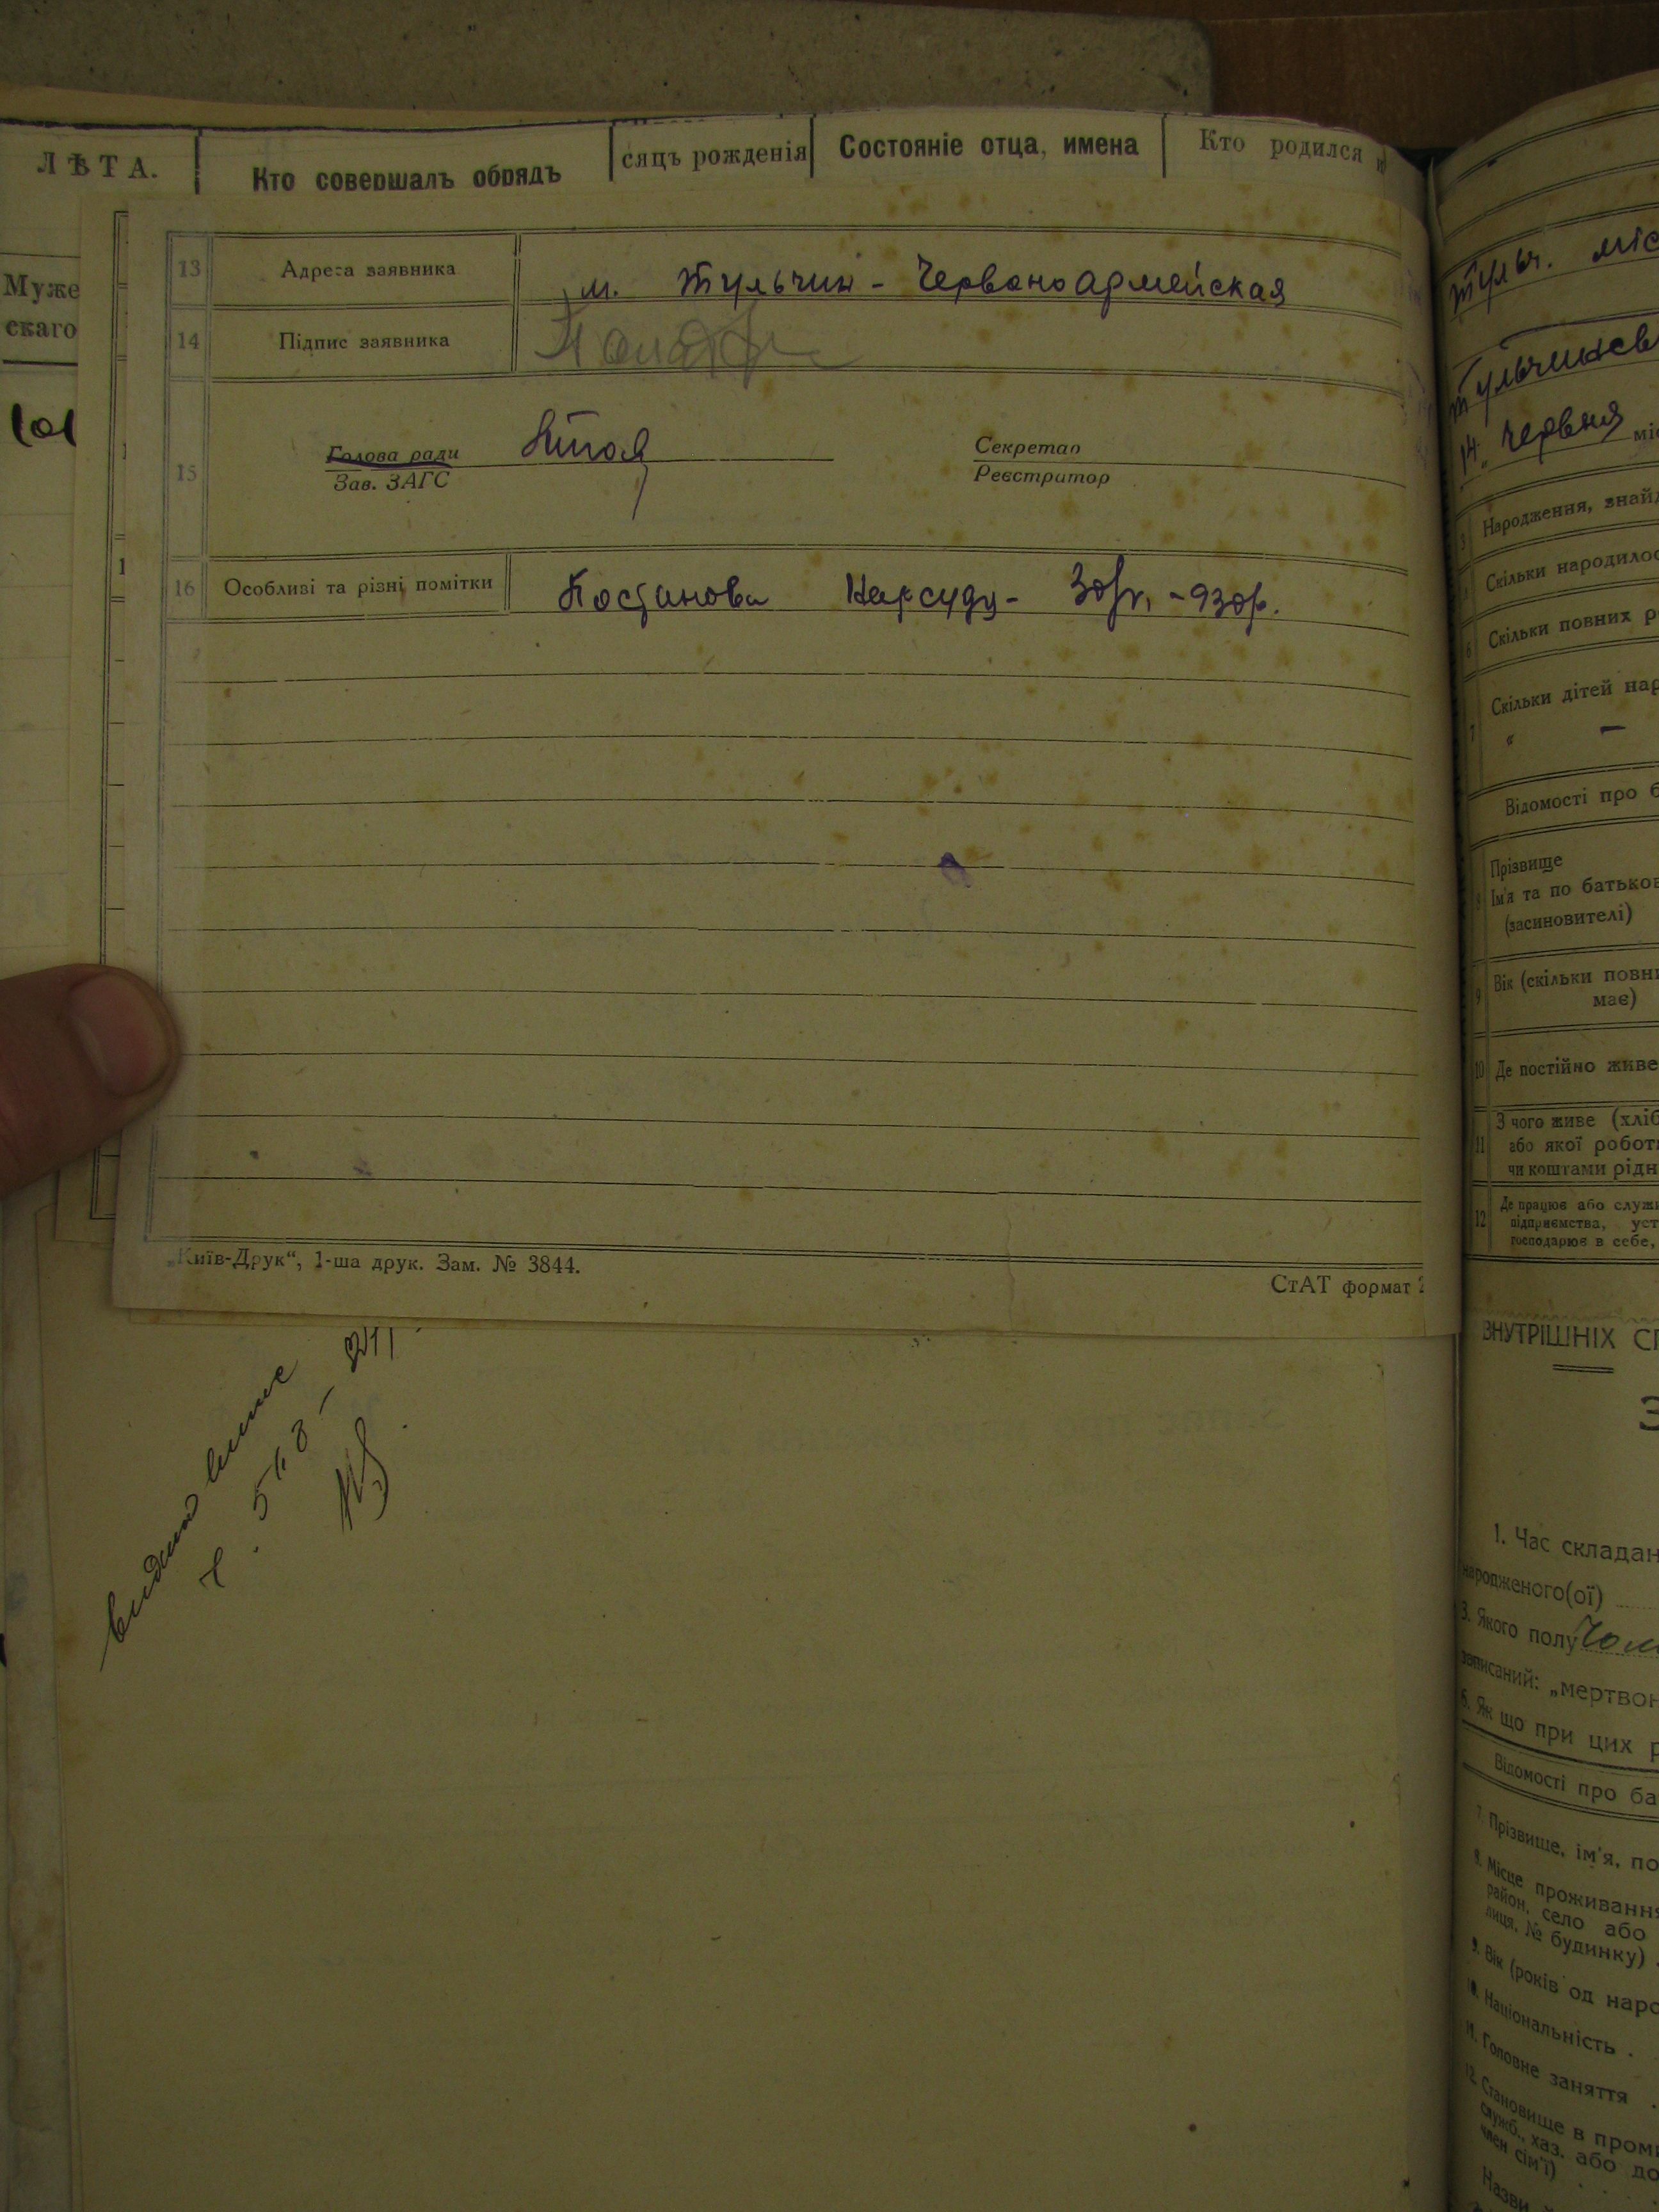 ЛѢТА. Кто совершалъ обрядъ сяцъ рожденія Состояніе отца, имена Кто родился
Муже
скаго
13 Адреса заявника м. Тульчин - Червоноармейская
14 Підпис заявника
15 Голова ради Секретар
Зав. ЗАГС Реєстратор
16 Особливі та різні помітки Постанова Нарсуду - -930р.
„Київ-Друк“, 1-ша друк. Зам. № 3844.
СтАТ формат 2
Тульч. міс
Тульчинсь
14 червня мі
Народження, знай
Скільки народилос
6 Скільки повних р
7 Скільки дітей нар
„ —
Відомості про б
Прізвище
Ім'я та по батьков
(засиновителі)
9 Вік (скільки повни
має)
10 Де постійно живе
11 З чого живе (хліб
або якої робот
чи коштами рідн
12 Де працює або служи
підприємства, уст
господарює в себе,
ВНУТРІШНІХ СП
З
1. Час складан
народженого(ої)
3. Якого полу Чол
записаний: „мертвон
6. Як що при цих р
Відомості про ба
7. Прізвище, ім'я, по
8. Місце проживання
район, село або
лиця, № будинку)
9. Вік (років од наро
10. Національність
11. Головне заняття
12. Становище в проми
служб., хаз. або до
член сім'ї)
Назви